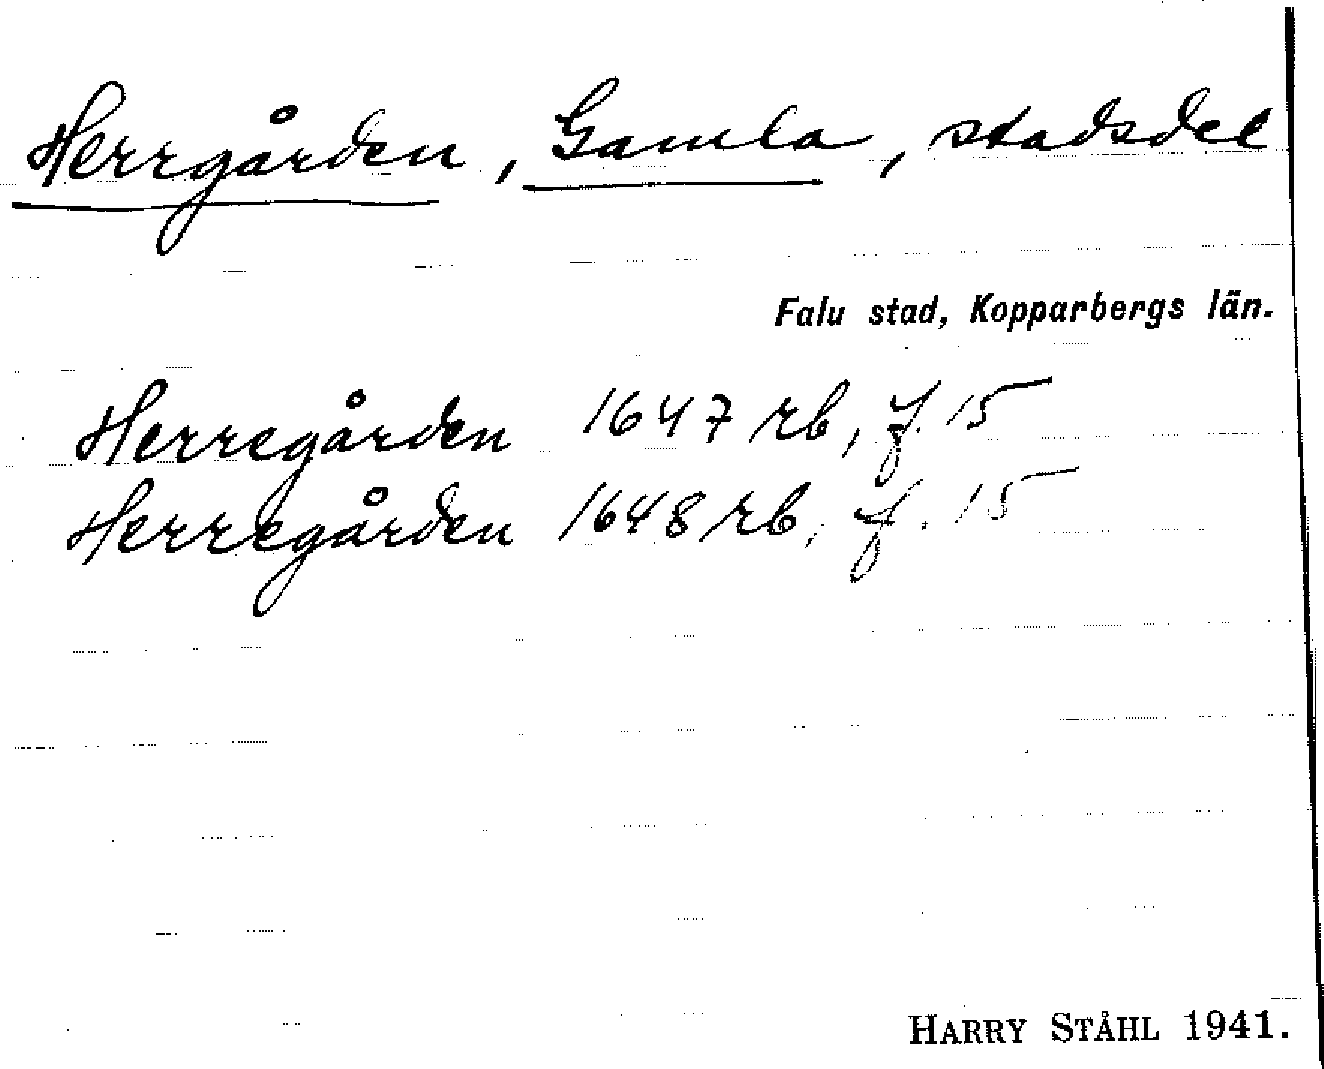 Herrgården, Gamla, stadsdel
Falu stad, Kopparbergs län.
Herregården 1647 rb, f. 15
Herregården 1648 rb, f. 15
HARRY STÅHL 1941.